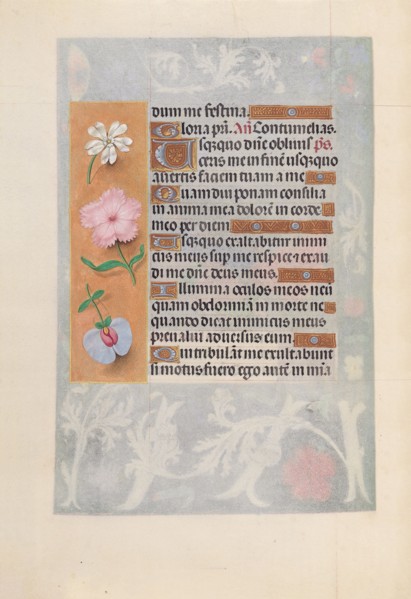 dum me festina.
Gloria pri. An̄ Contumelias.
Usq̄quo dñe obliuis ps.
ceris me in finē usq̄quo
auertis faciem tuam a me
Quam diu ponam consilia
in anima mea dolorē in corde
meo per diem
Usq̄quo exaltabitur inimi
cus meus sup me respice et exau
di me dñe deus meus.
Illumina oculos meos neū
quam obdormiā in morte ne
quando dicat inimicus meus
preualui aduersus eum.
Qui tribulāt me exultabunt
si motus fuero ego autē in mīa